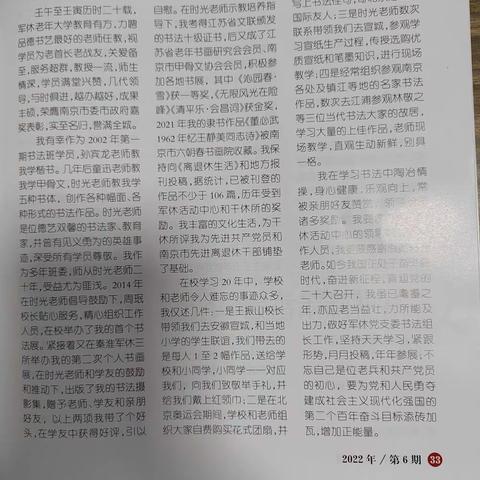 壬午至壬寅历时二十载，
军休老年大学教育有方，力聘
品德书艺最好的老师任教，视
学员为老首长老战友，关爱备
至，服务超群，教授一流，师生
情深，学员满堂兴赞，几代领
导，与时俱进，越办越好，成果
丰硕，荣膺南京市委市政府嘉
奖表彰，实至名归，誉满全城。
我有幸作为 2002 年第一
期书法班学员，孙宾龙老师教
我学楷书。几年后童迅老师教
我学甲骨文，时光老师教我学
五种书体，创作各种幅面、各
种形式的书法作品。时光老师
是位德艺双馨的书法家、教育
家，并曾有见义勇为的英雄事
迹，深受所有学员尊敬。我作
为多年班委，师从时光老师二
十年，受益尤为匪浅。2014 年
在时光老师倡导鼓励下，周珉
校长贴心服务，精心组织工作
人员，在校举办了我的首个书
法展。紧接着又在秦淮军休三
所举办我的第二次个人书画
展，在时光老师和学友的鼓励
和推动下，出版了我的书法摄
影集，赠予老师、学友和亲朋
好友，以上两项我带了个好
头，在学友中获得好评，引以
自慰。在时光老师示教培养指
导下，我考得江苏省文联颁发
的书法十级证书，后又成了江
苏省老年书画研究会会员、南
京市甲骨文协会会员，积极参
加各地书展，其中《沁园春·
雪》获一等奖，《无限风光在险
峰》《清平乐·会昌词》获金奖，
2021 年我的隶书作品《董必武
1962 年忆王静美同志诗》被南
京市六朝春书画院收藏。我保
持向《离退休生活》和地方报
刊投稿，据统计，已被刊登的
作品不少于 106 篇，历年受到
军休活动中心和干休所的奖
励。我丰富的文化生活，为干
休所评我为先进共产党员和
南京市先进离退休干部铺垫
了基础。
在校学习 20 年中，学校
和老师令人难忘的事迹众多，
我仅述几件：一是王振山校长
带领我们去安徽宣城，和当地
小学的学生联谊，我们带去的
是每人 1 至 2 幅作品，送给学
校和小同学，小同学一一对应
我们，向我们致敬举手礼，并
给我们戴上红领巾；二是在北
京奥运会期间，学校和老师组
织大家自费购买花式团扇，并
写上书法佳句，
国际友人；三是时光老师数次
联系带领我们去宣城，参观学
习宣纸生产过程，传授选购优
质宣纸和笔墨知识，进行现场
教学；四是经常组织参观南京
各处及镇江等地的名家书法
作品，数次去江浦参观林散之
等三位当代书法大家的故居，
学习大量的上佳作品，老师现
场教学，直观生动新鲜，别具
一格。
我在学习书法中陶冶情
操，身心健康，乐观向上，常
被亲朋好友赞赏，
诸多奖励。我
休活动中心的领
作人员，我
老师。如今我国正处于
时代，奋进新征程，喜迎党的
二十大召开，我虽已耄耋之
年，亦应老当益壮，力所能及
出力，做好军休党支委书法组
长工作，坚持天天学习，紧跟
形势，月月投稿，年年参展；不
忘自己是位老兵和共产党员
的初心，要为党和人民勇夺
建成社会主义现代化强国的
第二个百年奋斗目标添砖加
瓦，增加正能量。
2022 年 / 第 6 期 33